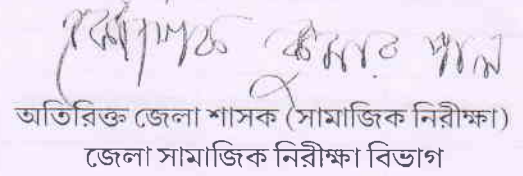 কুমার পাল
অতিরিক্ত জেলা শাসক (সামাজিক নিরীক্ষা)
জেলা সামাজিক নিরীক্ষা বিভাগ